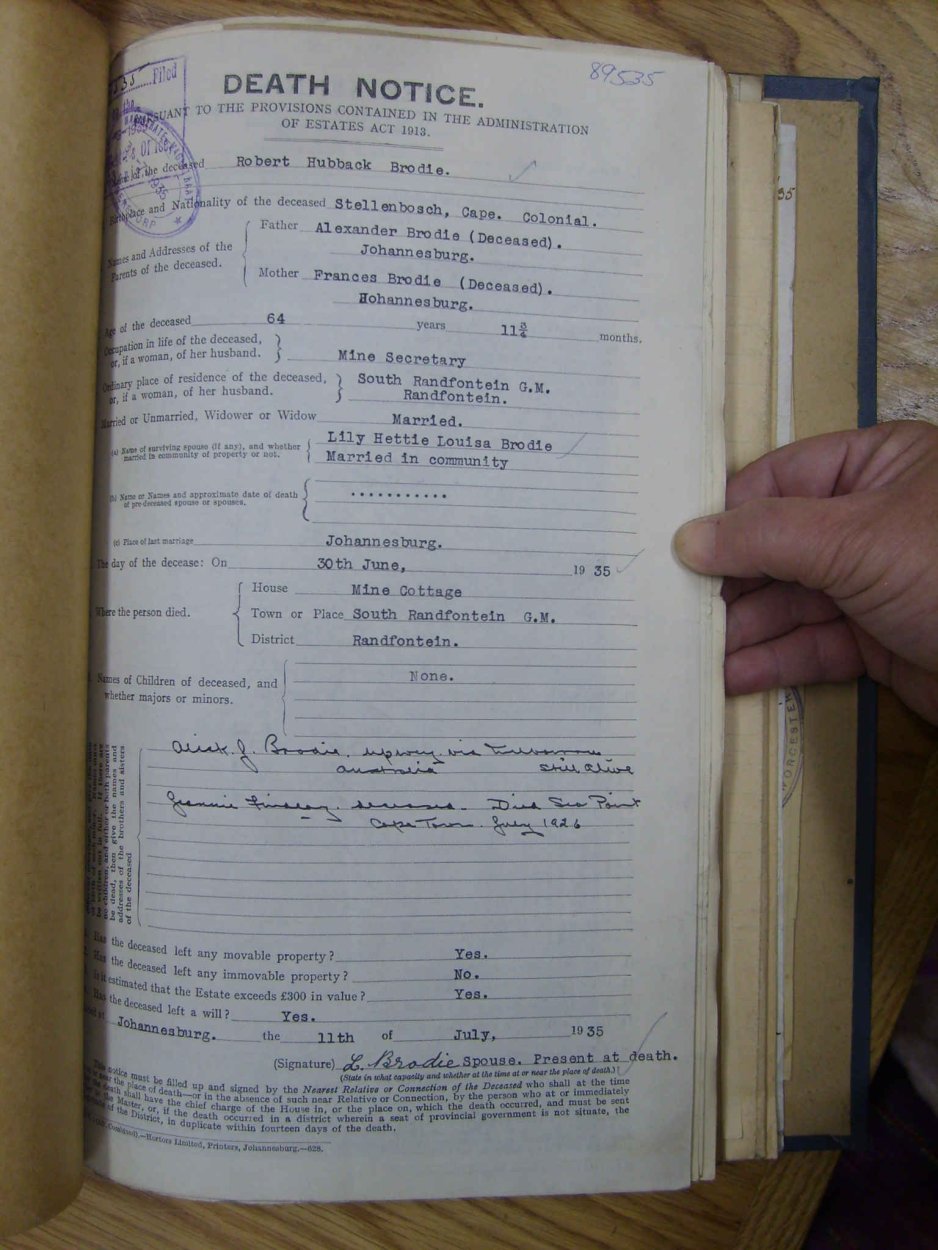 89535
Filed
DEATH NOTICE.
PURSUANT TO THE PROVISIONS CONTAINED IN THE ADMINISTRATION
OF ESTATES ACT 1913.
of the deceased Robert Hubback Brodie.
Birthplace and Nationality of the deceased Stellenbosch, Cape. Colonial.
Names and Addresses of the Parents of the deceased.
Father Alexander Brodie (Deceased).
Johannesburg.
Mother Frances Brodie (Deceased).
Hohannesburg.
Age of the deceased 64 years 11¾ months.
Occupation in life of the deceased,
or, if a woman, of her husband. Mine Secretary
Ordinary place of residence of the deceased, South Randfontein G.M.
or, if a woman, of her husband. Randfontein.
Married or Unmarried, Widower or Widow Married.
(a) Name of surviving spouse (if any), and whether Lily Hettie Louisa Brodie
married in community of property or not. Married in community
(b) Name or Names and approximate date of death ...........
of pre-deceased spouse or spouses.
(c) Place of last marriage Johannesburg.
The day of the decease: On 30th June, 1935
Where the person died.
House Mine Cottage
Town or Place South Randfontein G.M.
District Randfontein.
Names of Children of deceased, and None.
whether majors or minors.
be dead, then give the names and
addresses of the brothers and sisters
of the deceased
Alick J. Brodie, upwey via
Australia still alive
Jeannie Findlay. deceased. Died Sea Point
Cape Town. July 1926
Has the deceased left any movable property? Yes.
Has the deceased left any immovable property? No.
Is it estimated that the Estate exceeds £300 in value? Yes.
Has the deceased left a will? Yes.
Dated at Johannesburg. the 11th of July, 1935
(Signature) L. Brodie Spouse. Present at death.
(State in what capacity and whether at the time at or near the place of death.)
This notice must be filled up and signed by the Nearest Relative or Connection of the Deceased who shall at the time
or near the place of death—or in the absence of such near Relative or Connection, by the person who at or immediately
the death, shall have the chief charge of the House in, or the place on, which the death occurred, and must be sent
the Master, or, if the death occurred in a district wherein a seat of provincial government is not situate, the
of the District, in duplicate within fourteen days of the death.
Hortors Limited, Printers, Johannesburg.—628.